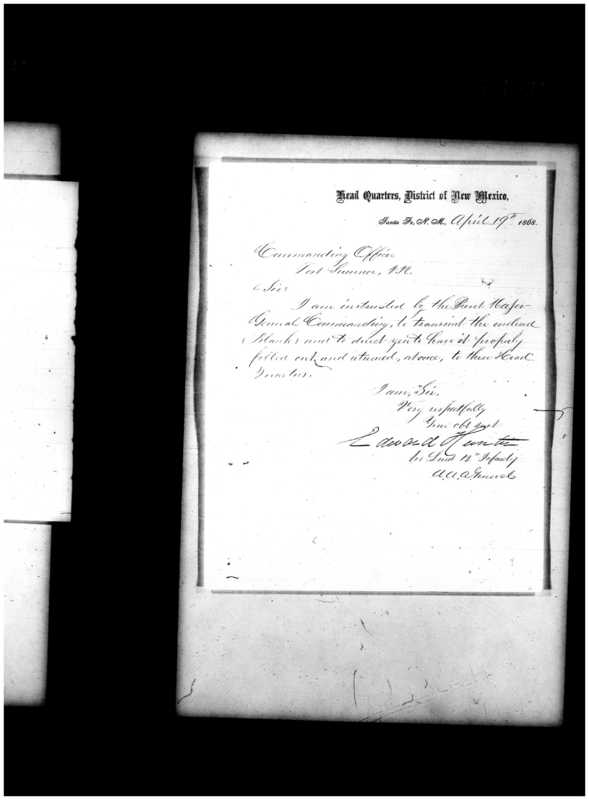 Head Quarters, District of New Mexico,
Santa Fe, N. M., April 19th 1868.
Commanding Officer
Fort Sumner, N.M.
Sir
I am instructed by the Brevt Major
General Commanding, to transmit the enclosed
Blank and to direct you to have it properly
filled out and returned, at once, to these Head
Quarters.
I am, Sir,
Very respectfully
Your obt svt
Edward Hunter
1st Lieut 12th Infantry
A.A.A. General